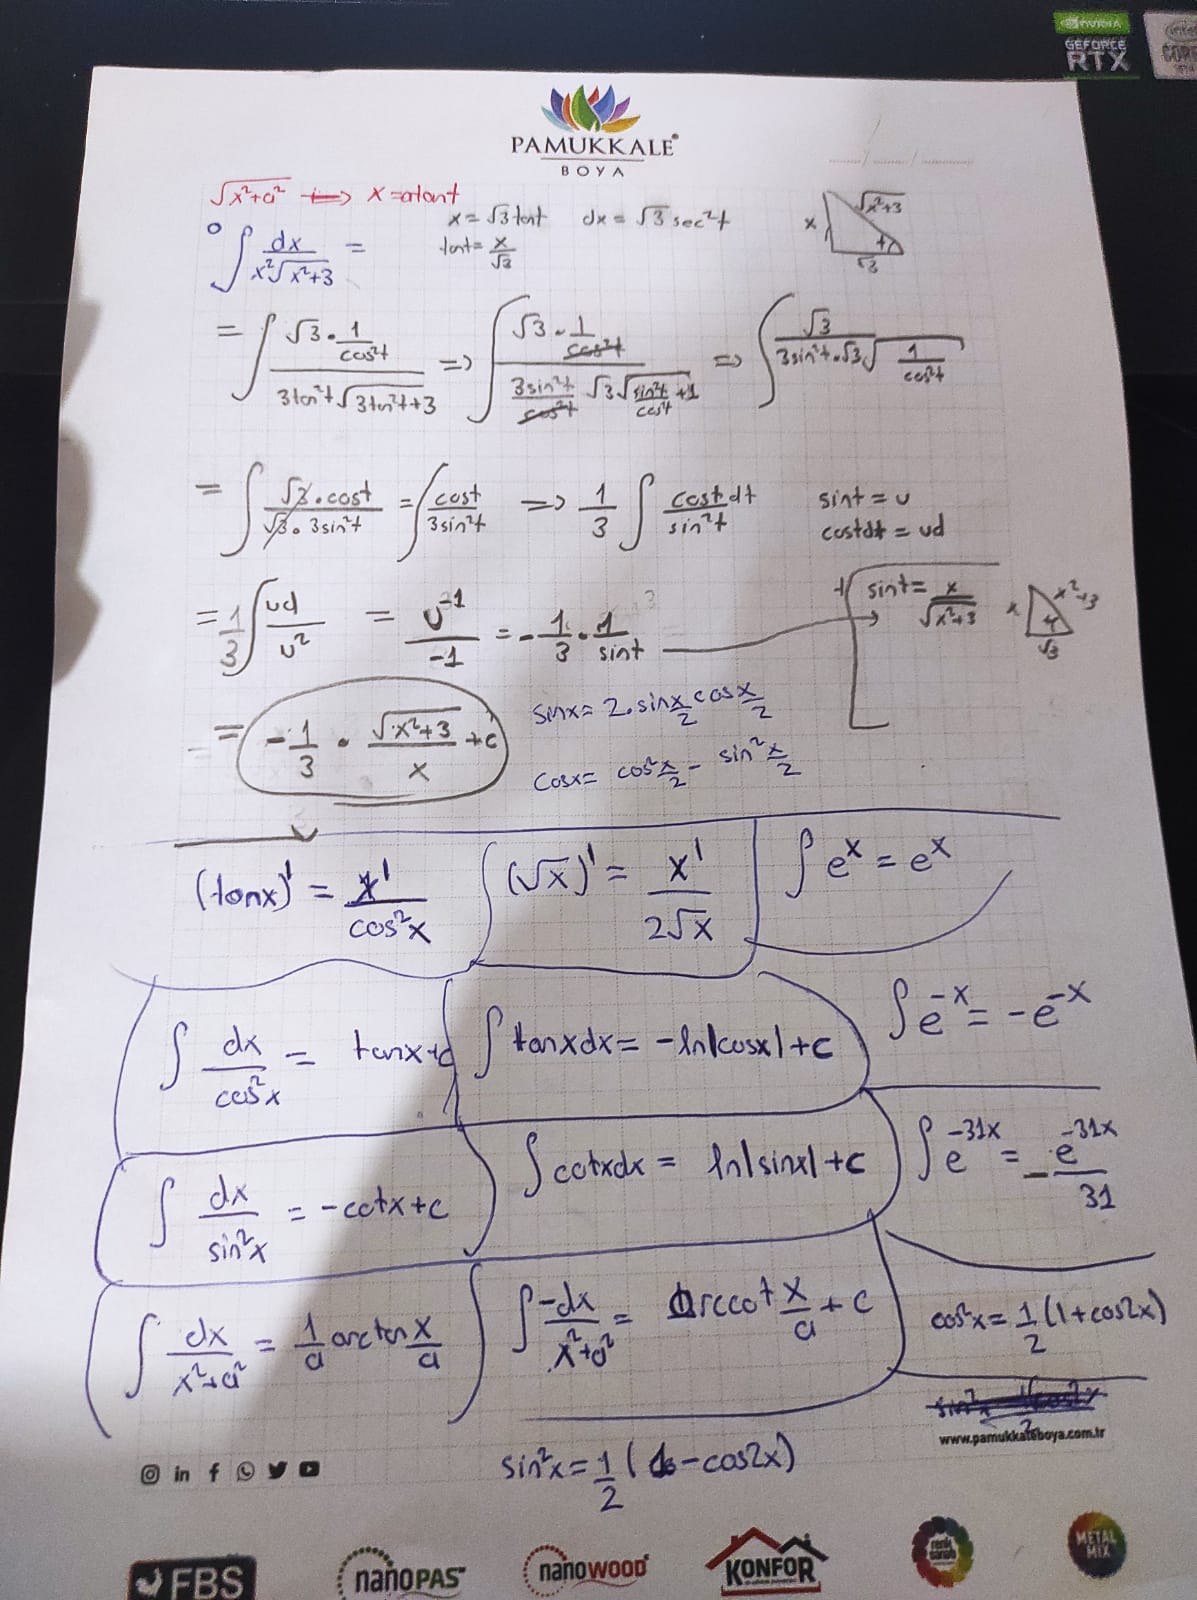 NVIDIA
GEFORCE
RTX
CORE
PAMUKKALE
BOYA
√x²+a² ⟹ x=atant
x=√3tant dx=√3sec²t
tant=x/√3
x √x²+3 t √3
∫ dx/(x²√x²+3) =
= ∫ (√3·1/cos²t)/(3tan²t√3tan²t+3) => ∫ (√3·1/cos²t)/(3sin²t/cos²t √3√(sin²t/cos²t+1)) => ∫ √3/(3sin²t·√3√(1/cos²t))
= ∫ √3·cost/(√3·3sin²t) = ∫ cost/3sin²t => 1/3 ∫ costdt/sin²t
sint=u
costdt=ud
= 1/3 ∫ ud/u² = u⁻¹/-1 = -1/3·1/sint
sint=x/√x²+3
x x²+3 t √3
= -1/3 · √x²+3/x +c
sinx=2.sinx/2 cosx/2
cosx= cos²x/2 - sin²x/2
(tanx)' = x'/cos²x
(√x)' = x'/2√x
∫ eˣ = eˣ
∫ dx/cos²x = tanx+c
∫ tanxdx = -ln|cosx|+c
∫ e⁻ˣ = -e⁻ˣ
∫ dx/sin²x = -cotx+c
∫ cotxdx = ln|sinx|+c
∫ e⁻³¹ˣ = -e⁻³¹ˣ/31
∫ dx/x²+a² = 1/a arctan x/a
∫ -dx/x²+a² = arccot x/a +c
cos²x=1/2(1+cos2x)
www.pamukkaleboya.com.tr
sin²x=1/2(1-cos2x)
FBS
nanoPAS
nanoWOOD
KONFOR
METAL
MIX